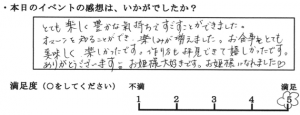 ・本日のイベントの感想は、いかがでしたか？
とても楽しく豊かな気持ちですごすことができました。
オマーンを知ることができ 楽しみが増えました。お食事もとても
美味しく楽しかったです。作り方も拝見できて嬉しかったです。
ありがとうございます。お姫様大好きです。お姫様になれました♡
満足度（○をしてください） 不満 満足
1 2 3 4 5